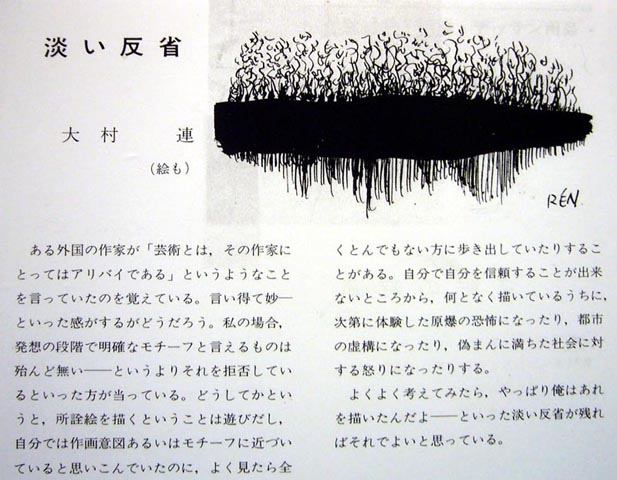 淡い反省
大村 連
（絵も）
RÉN
ある外国の作家が「芸術とは，その作家に
とってはアリバイである」というようなこと
を言っていたのを覚えている。言い得て妙―
といった感がするがどうだろう。私の場合，
発想の段階で明確なモチーフと言えるものは
殆んど無い――というよりそれを拒否してい
るといった方が当っている。どうしてかとい
うと，所詮絵を描くということは遊びだし，
自分では作画意図あるいはモチーフに近づい
ていると思いこんでいたのに，よく見たら全
くとんでもない方に歩き出していたりするこ
とがある。自分で自分を信頼することが出来
ないところから，何となく描いているうちに，
次第に体験した原爆の恐怖になったり，都市
の虚構になったり，偽まんに満ちた社会に対
する怒りになったりする。
よくよく考えてみたら，やっぱり俺はあれ
を描いたんだよ――といった淡い反省が残れ
ばそれでよいと思っている。